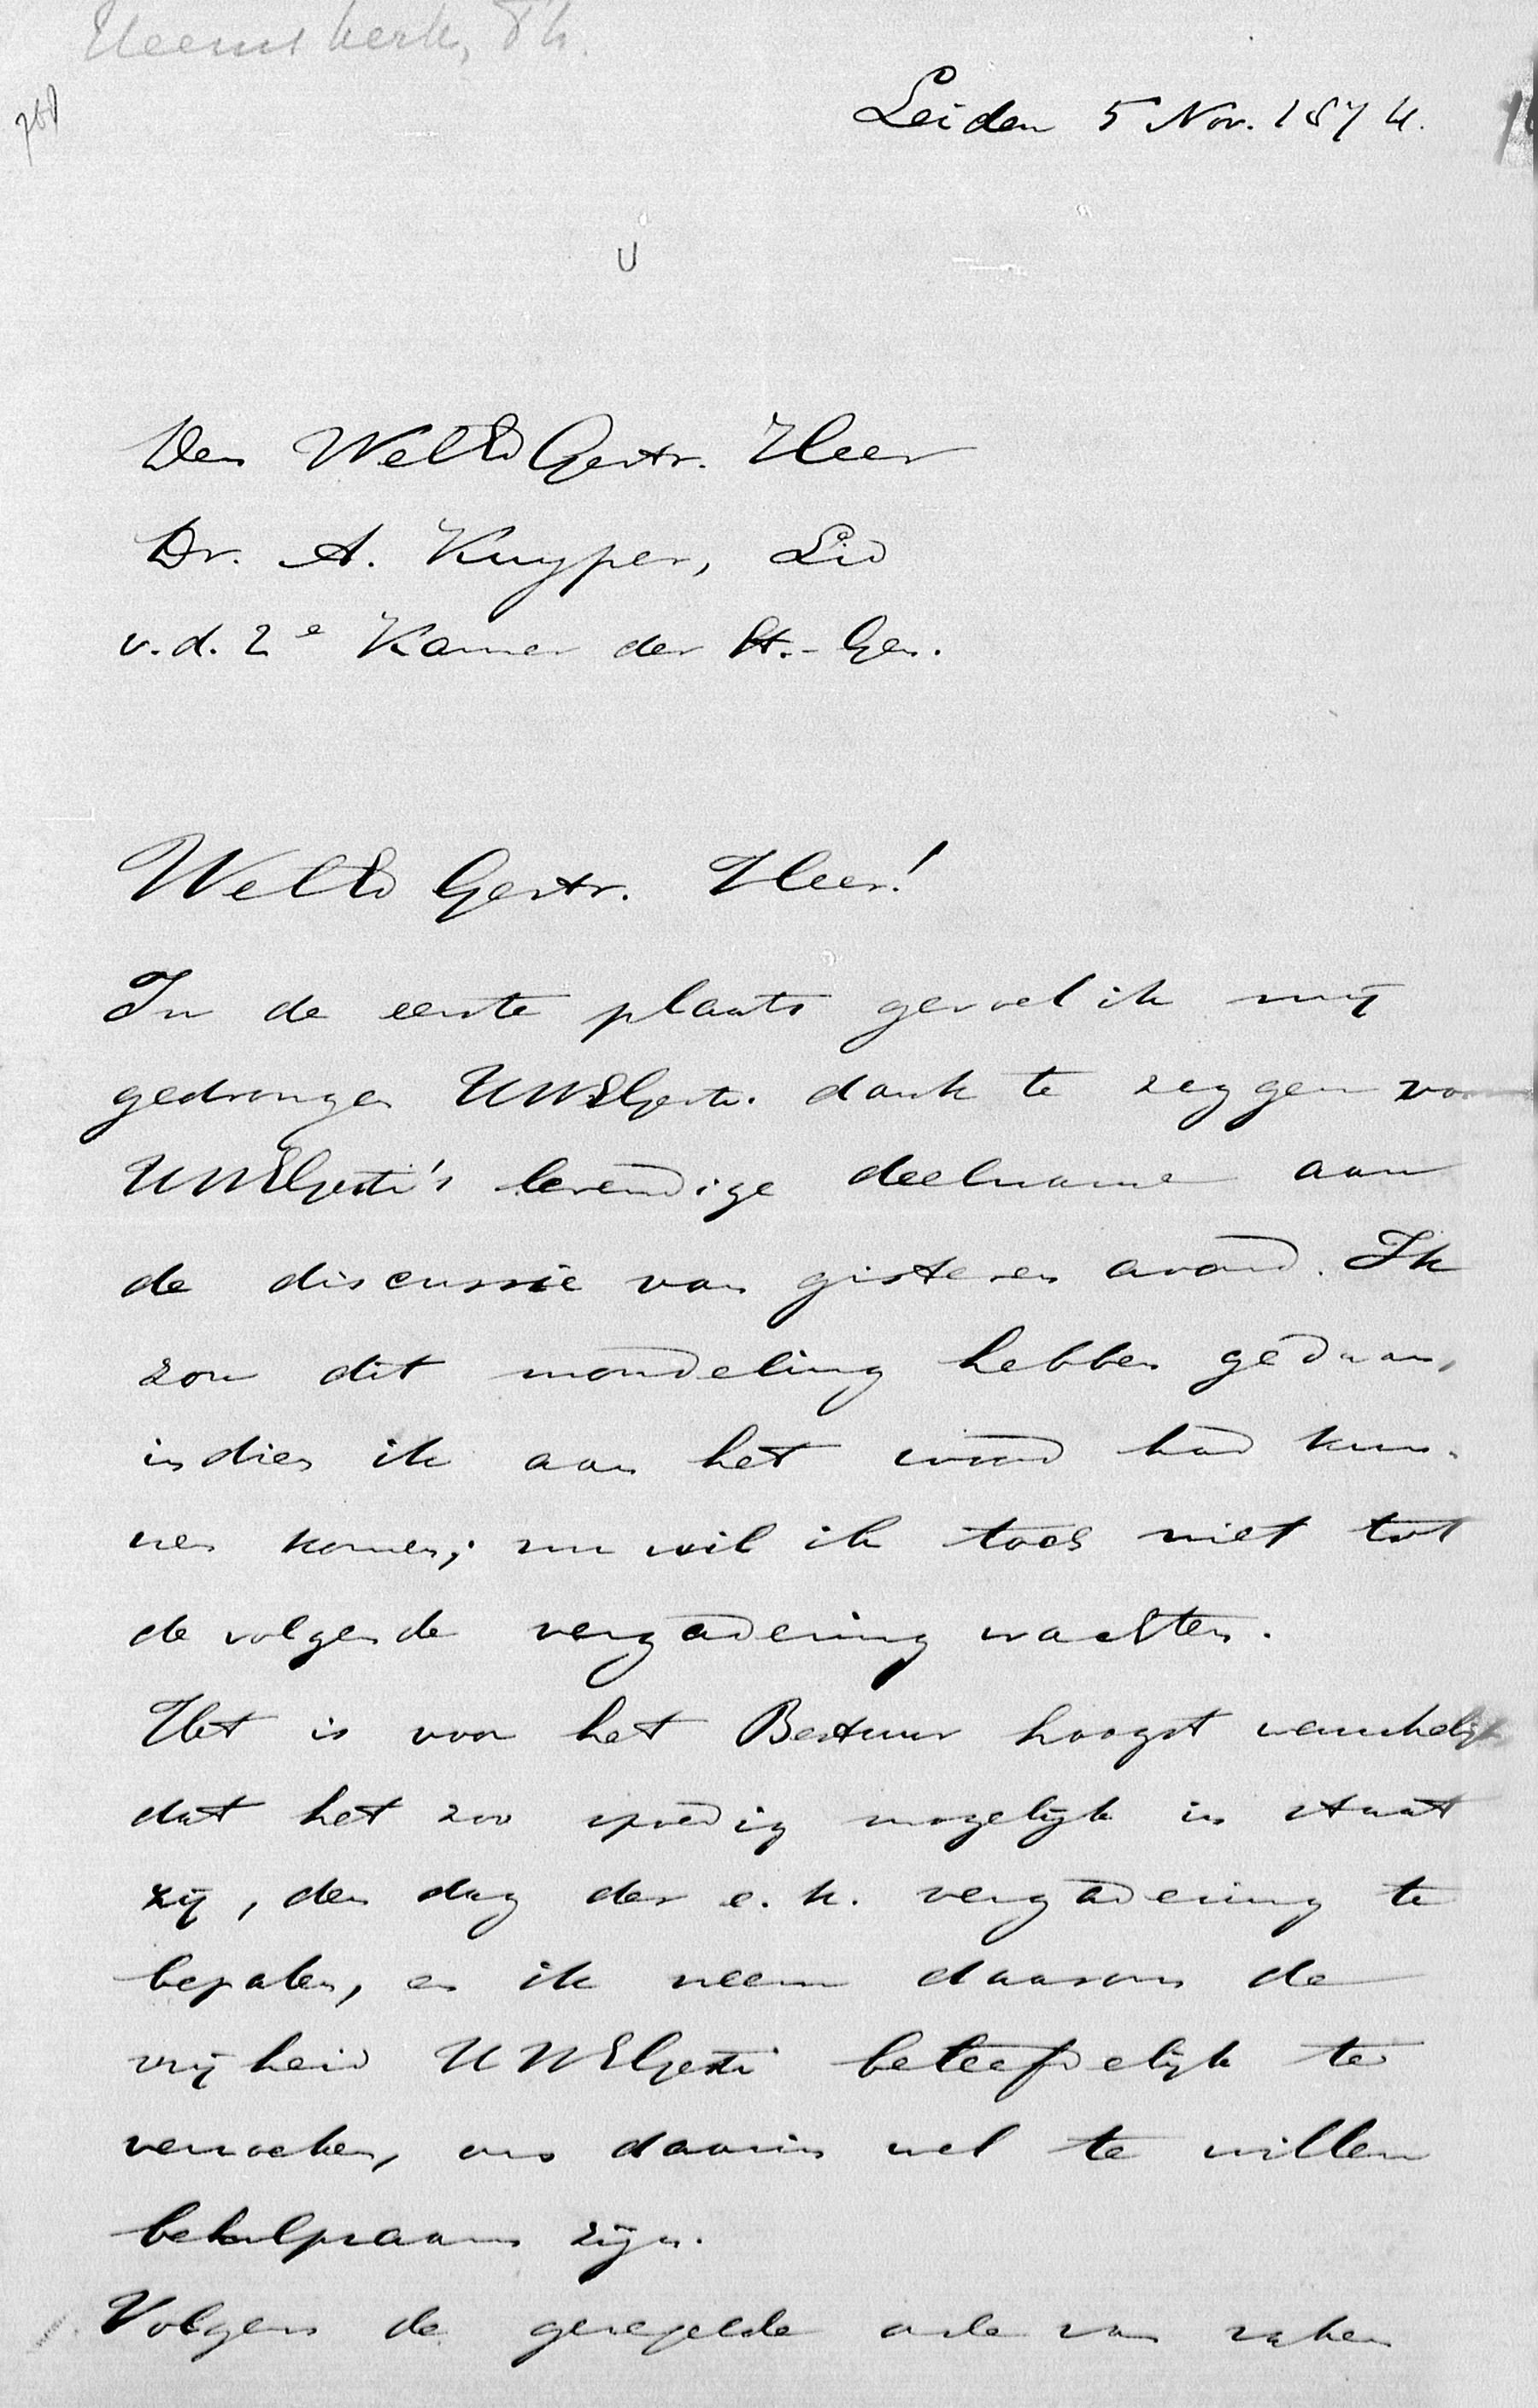 Heemskerk, Th.
768
Leiden 5 Nov. 1874.
Den WelEd Gestr. Heer
Dr. A. Kuyper, Lid
v. d. 2e Kamer der St.-Gen.
WelEd Gestr. Heer!
In de eerste plaats gevoel ik mij
gedrongen UWEGestr. dank te zeggen voor
UWEGestr's levendige deelname aan
de discussie van gisteren avond. Ik
zou dit mondeling hebben gedaan,
indien ik aan het woord had kun-
nen komen; nu wil ik toch niet tot
de volgende vergadering wachten.
Het is voor het Bestuur hoogst wenschelijk
dat het zoo spoedig mogelijk in staat
zij, den dag der e. k. vergadering te
bepalen, en ik neem daarom de
vrijheid UWEGestr beleefdelijk te
verzoeken, ons daarin wel te willen
behulpzaam zijn.
Volgens de geregelde orde van zaken